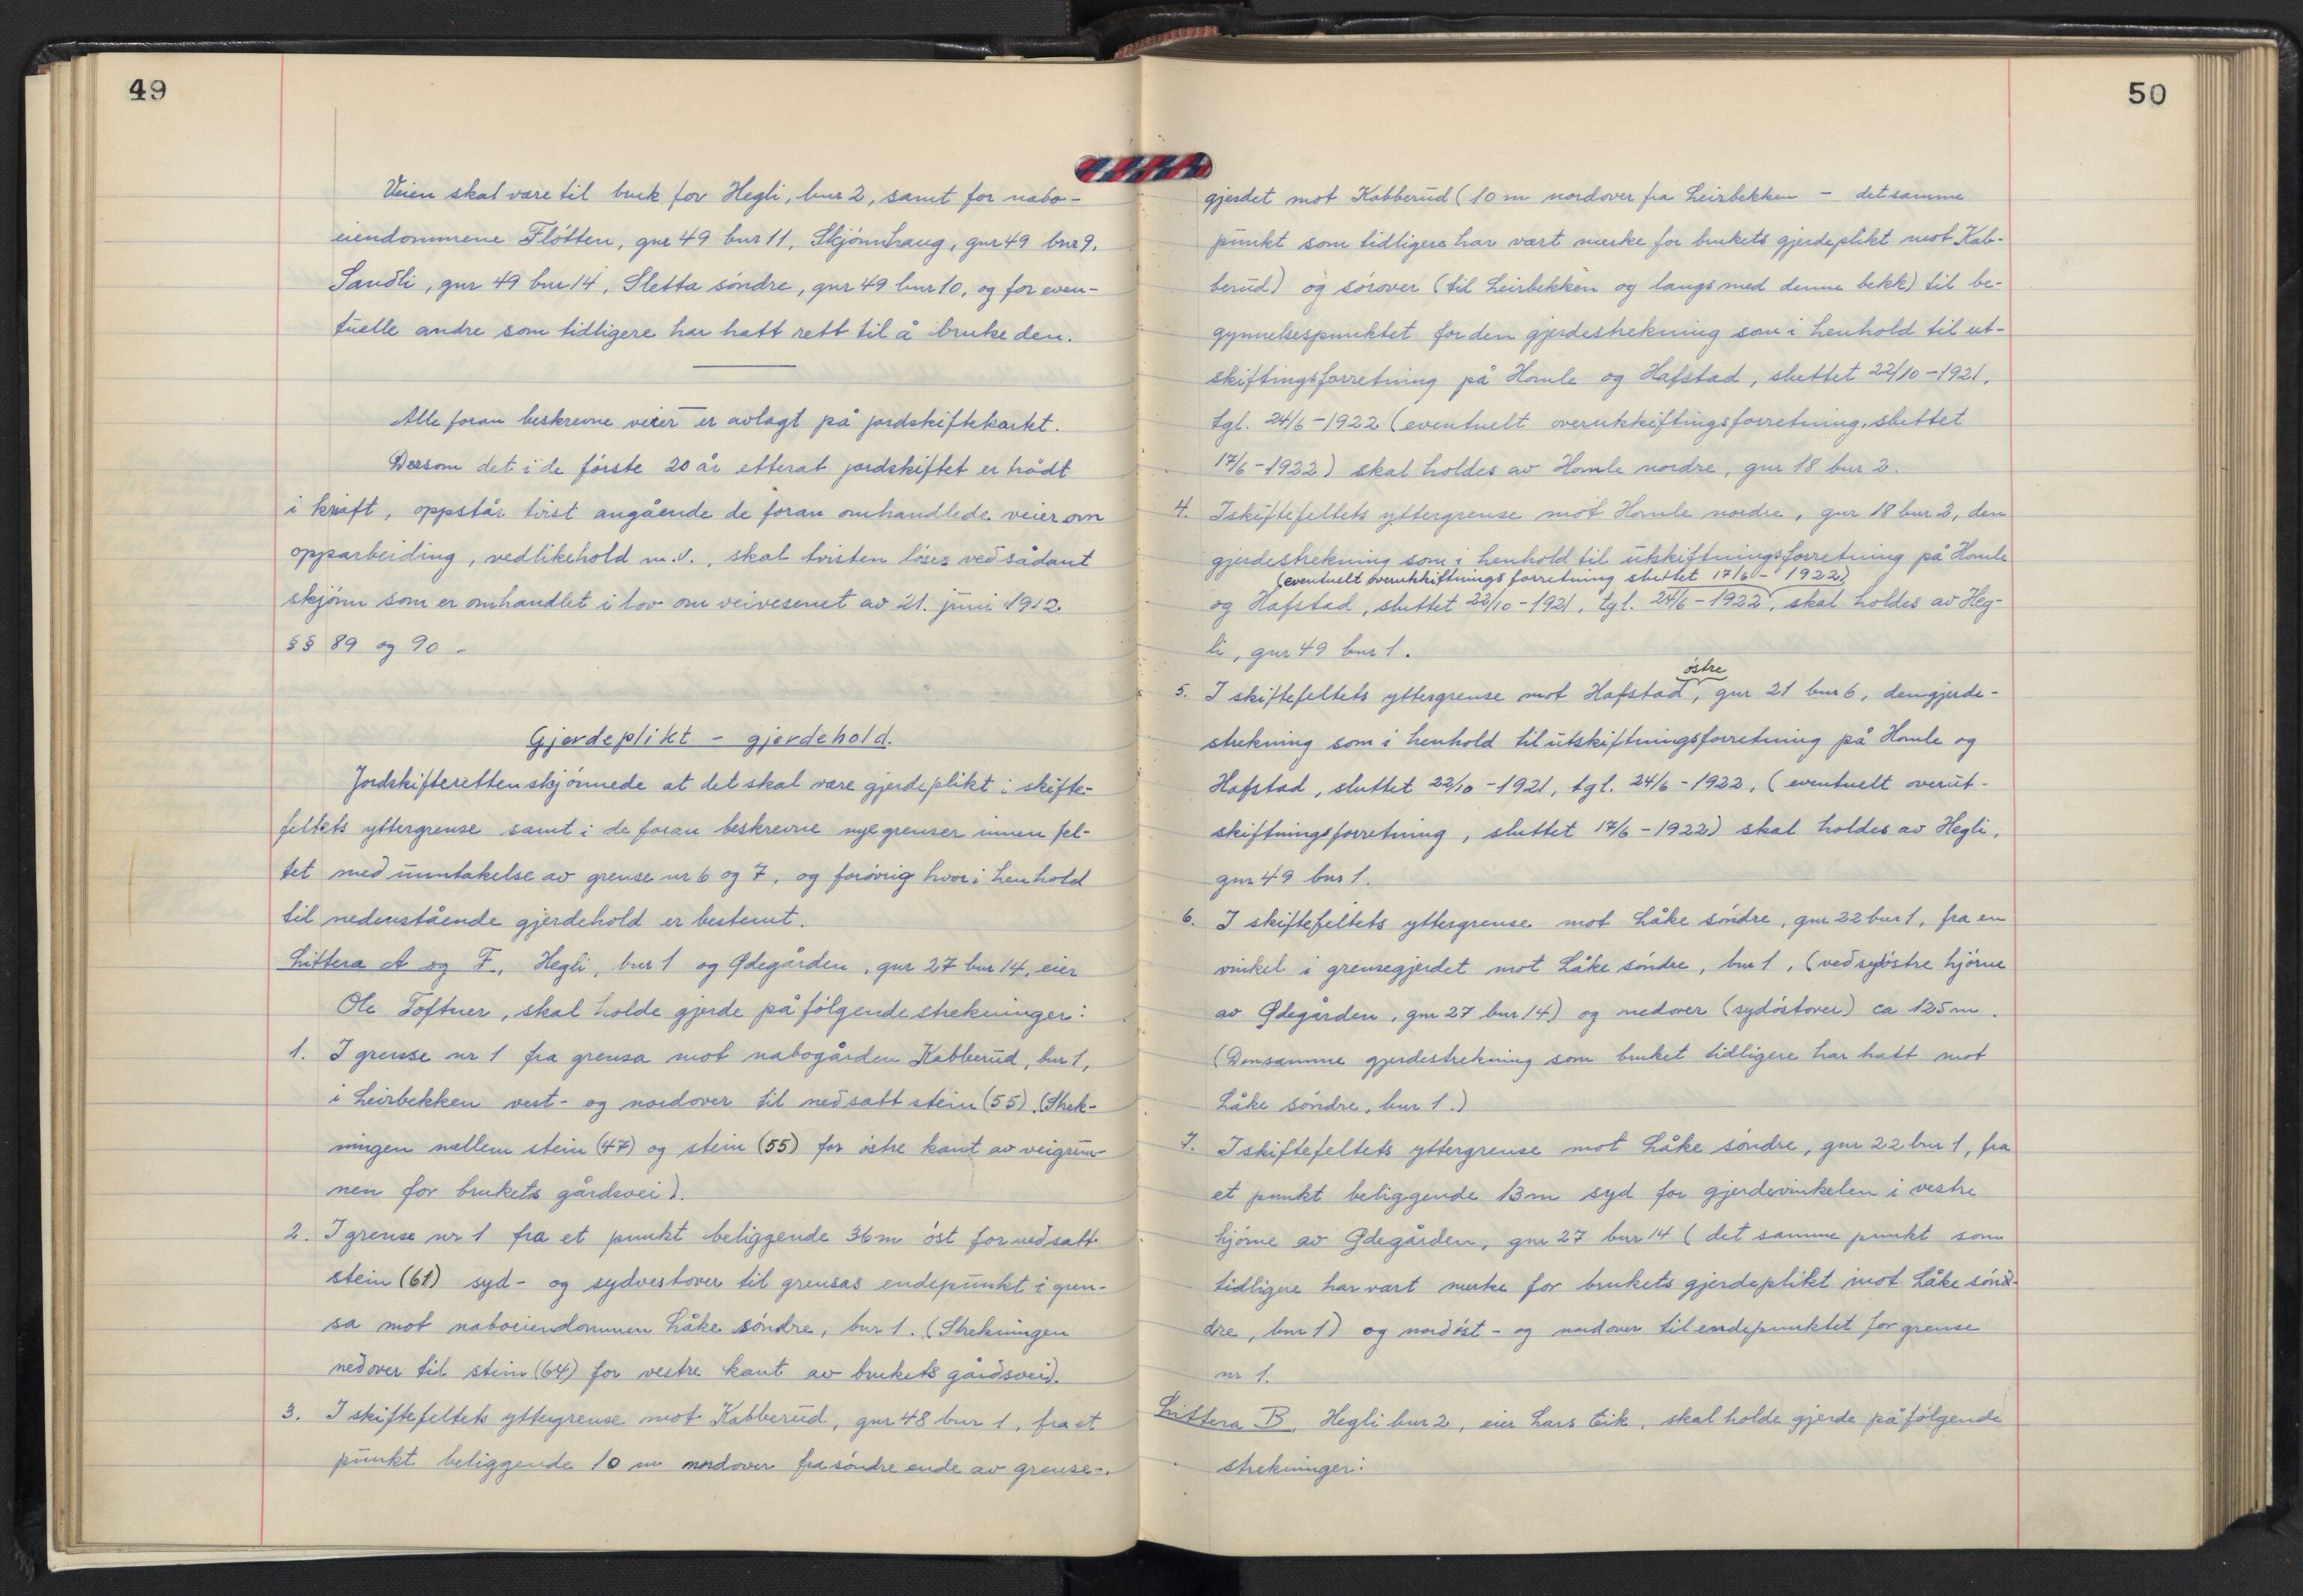 49
Veien skal være til bruk for Hegli, bnr 2, samt for nabo-
eiendommene Fløtten, gnr 49 bnr 11, Skjønnhaug, gnr 49 bnr 9,
Sandli, gnr 49 bnr 14, Sletta søndre, gnr 49 bnr 10, og for even-
tuelle andre som tidligere har hatt rett til å bruke den.
Alle foran beskrevne veier er avlagt på jordskiftekartet.
Dersom det i de første 20 år etterat jordskiftet er trådt
i kraft, oppstår tvist angående de foran omhandlede veier om
opparbeiding, vedlikehold m.v., skal tvisten løses ved sådant
skjønn som er omhandlet i lov om veivesenet av 21. juni 1912
§§ 89 og 90.
Gjerdeplikt - gjerdehold.
Jordskifteretten skjønnede at det skal være gjerdeplikt i skifte-
feltets yttergrense samt i de foran beskrevne nye grenser innen fel-
tet med unntakelse av grense nr 6 og 7, og forøvrig hvor i henhold
til nedenstående gjerdehold er bestemt.
Littera A og F, Hegli, bnr 1 og Ødegården, gnr 27 bnr 14, eier
Ole Toftner, skal holde gjerde på følgende strekninger:
1. I grense nr 1 fra grensa mot nabogården Kabberud, bnr 1,
i Leirbekken vest- og nordover til nedsatt stein (55). (Strek-
ningen mellem stein (47) og stein (55) for østre kant av veigrun-
nen for brukets gårdsvei).
2. I grense nr 1 fra et punkt beliggende 36 m øst for nedsatt
stein (61) syd- og sydvestover til grensas endepunkt i gren-
sa mot naboeiendommen Låke søndre, bnr 1. (Strekningen
nedover til stein (64) for vestre kant av brukets gårdsvei).
3. I skiftefeltets yttergrense mot Kabberud, gnr 48 bnr 1, fra et
punkt beliggende 10 m nordover fra søndre ende av grense-
50
gjerdet mot Kabberud (10 m nordover fra Leirbekken - det samme
punkt som tidligere har vært merke for brukets gjerdeplikt mot Kab-
berud) og sørover (til Leirbekken og langs med denne bekk) til be-
gynnelsespunktet for den gjerdestrekning som i henhold til ut-
skiftingsforretning på Homle og Hafstad, sluttet 22/10-1921,
tgl. 24/6-1922 (eventuelt overutskiftingsforretning, sluttet
17/6-1922) skal holdes av Homle nordre, gnr 18 bnr 2.
4. I skiftefeltets yttergrense mot Homle nordre, gnr 18 bnr 2, den
gjerdestrekning som i henhold til utskiftningsforretning på Homle
(eventuelt overutskiftnings forretning sluttet 17/6 - 1922)
og Hafstad, sluttet 22/10-1921, tgl. 24/6-1922, skal holdes av Heg-
li, gnr 49 bnr 1.
østre
5. I skiftefeltets yttergrense mot Hafstad, gnr 21 bnr 6, den gjerde-
strekning som i henhold til utskiftningsforretning på Homle og
Hafstad, sluttet 22/10-1921, tgl. 24/6-1922, (eventuelt overut-
skiftningsforretning, sluttet 17/6-1922) skal holdes av Hegli,
gnr 49 bnr 1.
6. I skiftefeltets yttergrense mot Låke søndre, gnr 22 bnr 1, fra en
vinkel i grensegjerdet mot Låke søndre, bnr 1, (ved sydøstre hjørne
av Ødegården, gnr 27 bnr 14) og nedover (sydøstover) ca 125 m.
(Den samme gjerdestrekning som bruket tidligere har hatt mot
Låke søndre, bnr 1.)
7. I skiftefeltets yttergrense mot Låke søndre, gnr 22 bnr 1, fra
et punkt beliggende 13 m syd for gjerdevinkelen i vestre
hjørne av Ødegården, gnr 27 bnr 14 (det samme punkt som
tidligere har vært merke for brukets gjerdeplikt mot Låke sønd-
dre, bnr 1) og nordøst- og nordover til endepunktet for grense
nr 1.
Littera B, Hegli bnr 2, eier Lars Eik, skal holde gjerde på følgende
strekninger: